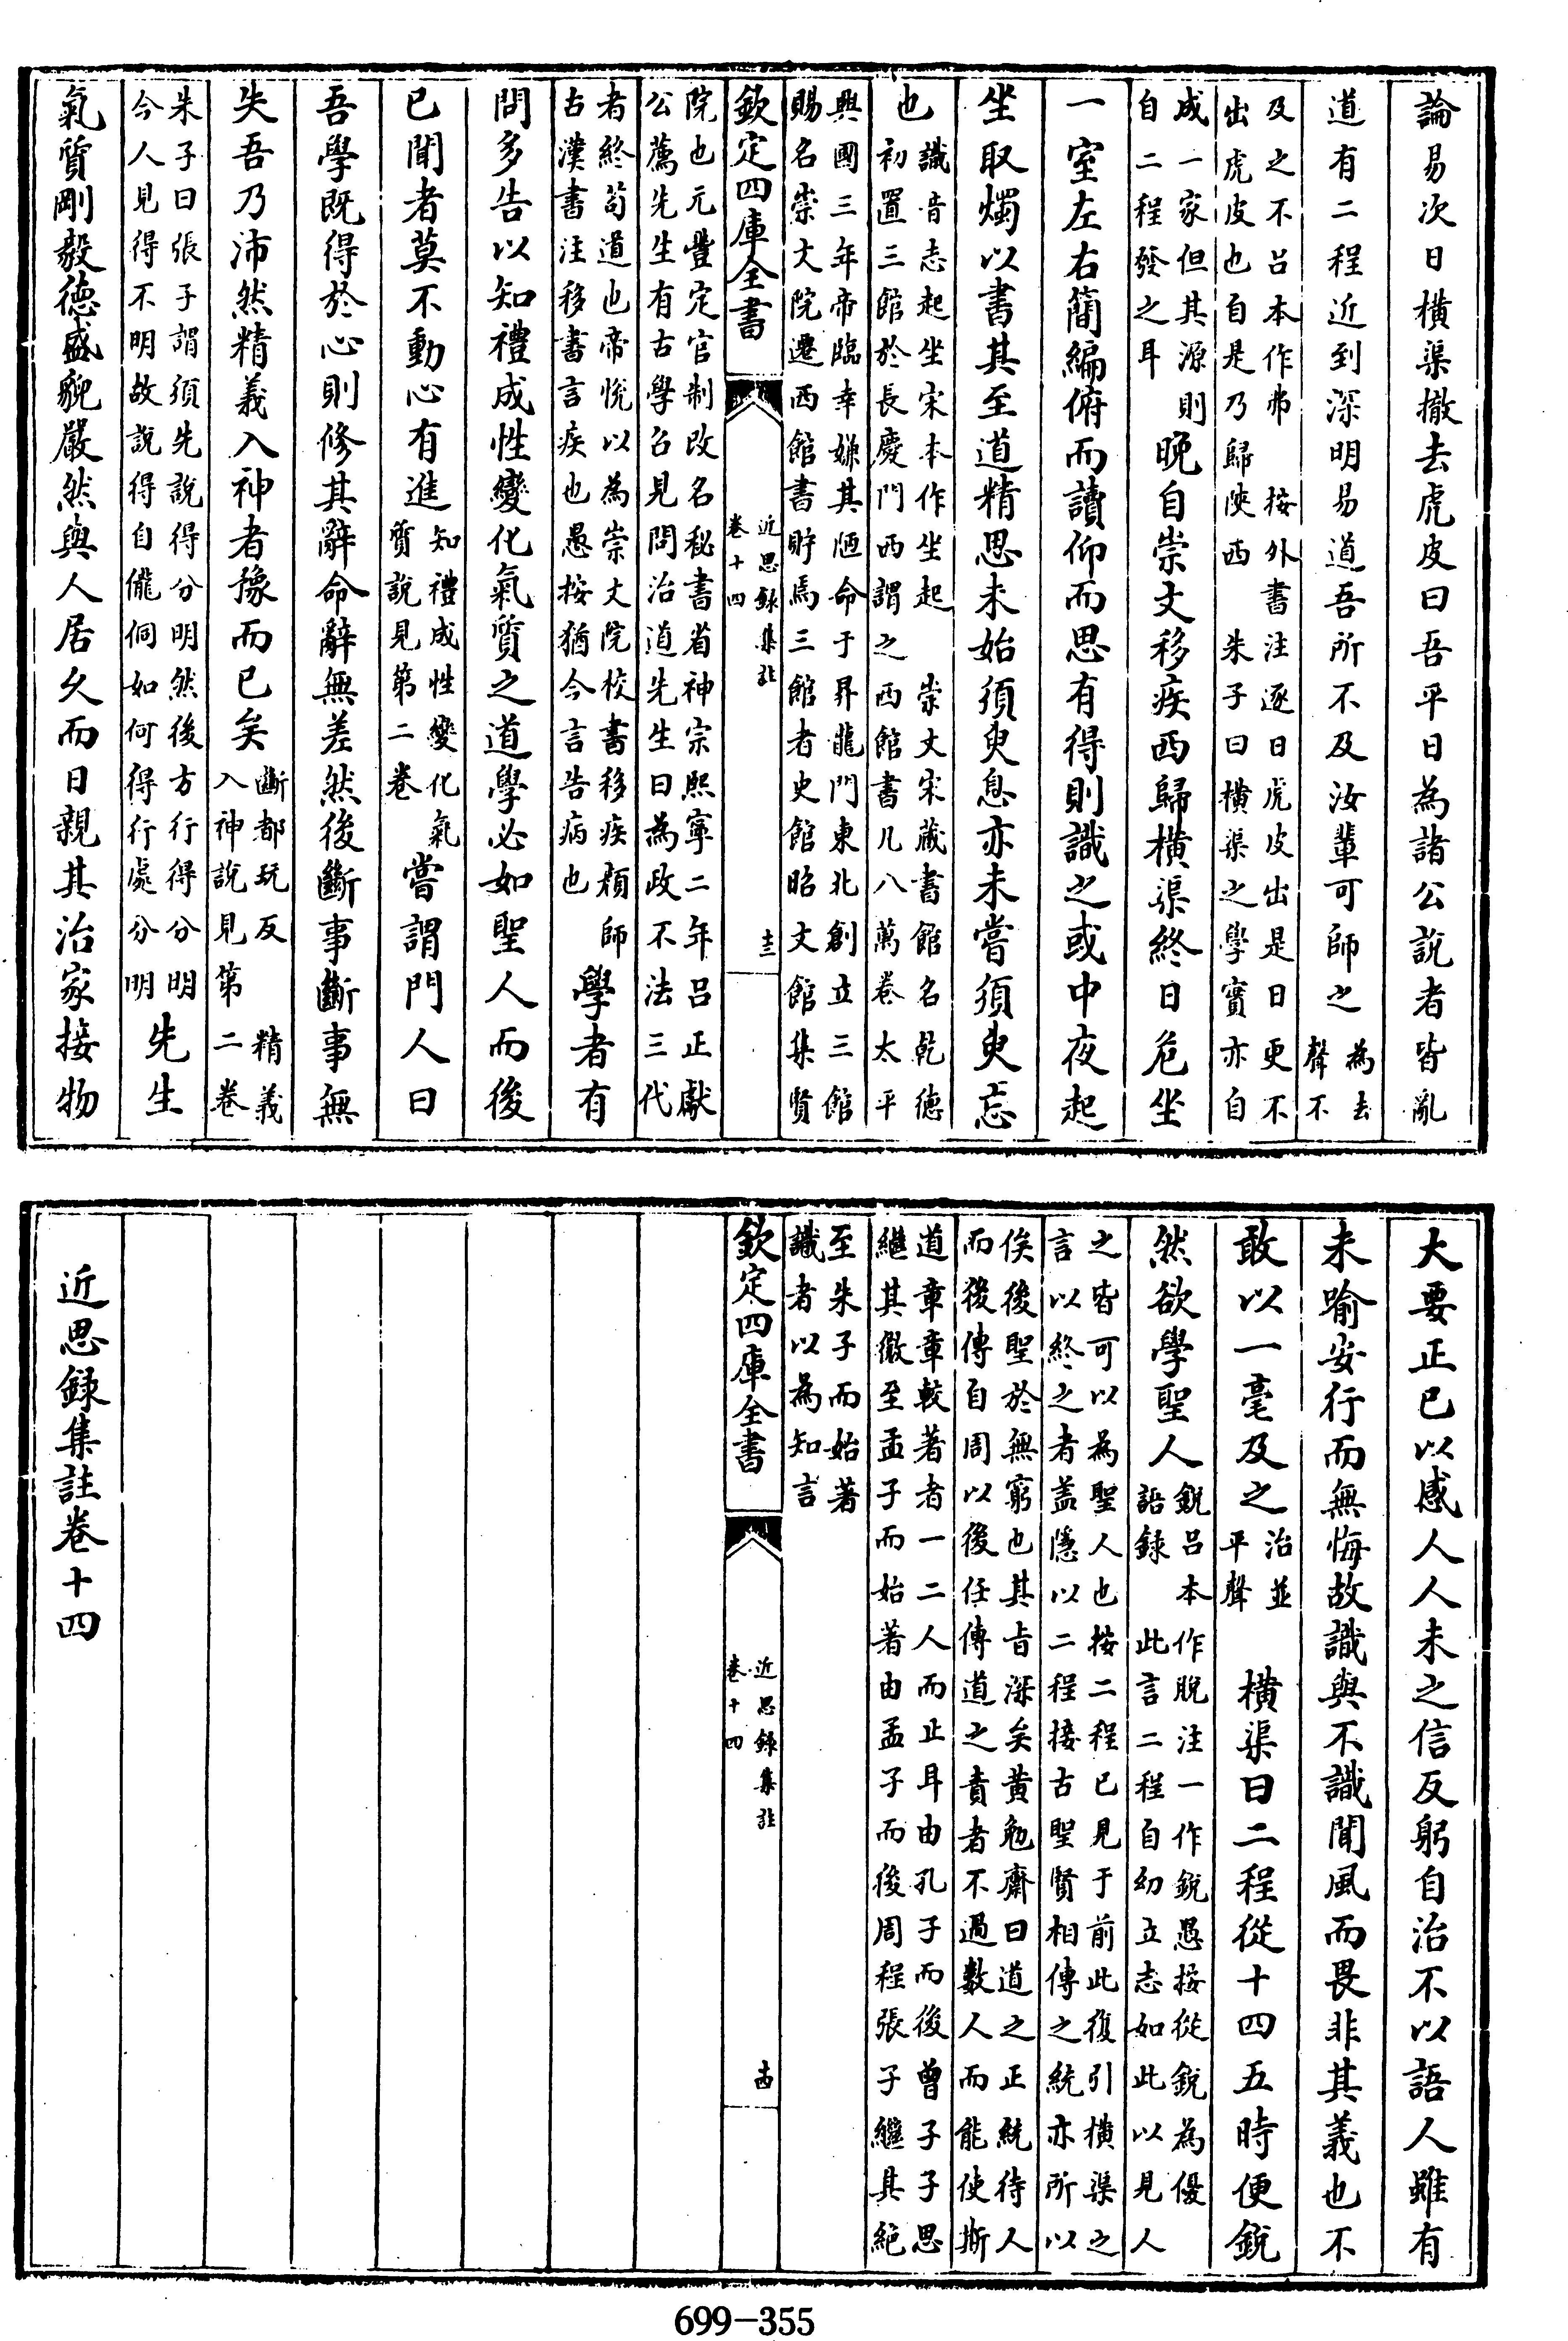 論易次日橫渠撤去虎皮曰吾平日為諸公說者皆亂
道有二程近到深明易道吾所不及汝輩可師之為去聲不
及之不呂本作弗　按外書注逐日虎皮出是日更不
出虎皮也自是乃歸陝西　朱子曰橫渠之學實亦自
成一家但其源則
自二程發之耳
晚自崇文移疾西歸橫渠終日危坐
一室左右簡編俯而讀仰而思有得則識之或中夜起
坐取燭以書其至道精思未始須臾息亦未嘗須臾忘
也
識音志起坐宋本作坐起　崇文宋藏書館名乾德
初置三館於長慶門西謂之西館書凡八萬卷太平
興國三年帝臨幸嫌其陋命于昇龍門東北創立三館
賜名崇文院遷西館書貯焉三館者史館昭文館集賢
欽定四庫全書
近思錄集註
卷十四
十三
院也元豐定官制改名秘書省神宗熙寧二年呂正獻
公薦先生有古學召見問治道先生曰為政不法三代
者終苟道也帝悅以為崇文院校書移疾顏師
古漢書注移書言疾也愚按猶今言告病也
學者有
問多告以知禮成性變化氣質之道學必如聖人而後
已聞者莫不動心有進
知禮成性變化氣
質說見第二卷
嘗謂門人曰
吾學既得於心則修其辭命辭無差然後斷事斷事無
失吾乃沛然精義入神者豫而已矣
斷都玩反　精義
入神說見第二卷
朱子曰張子謂須先說得分明然後方行得分明
今人見得不明故說得自儱侗如何得行處分明
先生
氣質剛毅德盛貌嚴然與人居久而日親其治家接物
大要正已以感人人未之信反躬自治不以語人雖有
未喻安行而無悔故識與不識聞風而畏非其義也不
敢以一毫及之
治並
平聲
橫渠曰二程從十四五時便銳
然欲學聖人
銳呂本作脫注一作銳愚按從銳為優
語錄　此言二程自幼立志如此以見人
之皆可以為聖人也按二程已見于前此復引橫渠之
言以終之者蓋隱以二程接古聖賢相傳之統亦所以
俟後聖於無窮也其旨深矣黃勉齋曰道之正統待人
而後傳自周以後任傳道之責者不過數人而能使斯
道章章較著者一二人而止耳由孔子而後曾子子思
繼其微至孟子而始著由孟子而後周程張子繼其絕
至朱子而始著
識者以為知言
欽定四庫全書
近思錄集註
卷十四
十四
近思錄集註卷十四
699-355